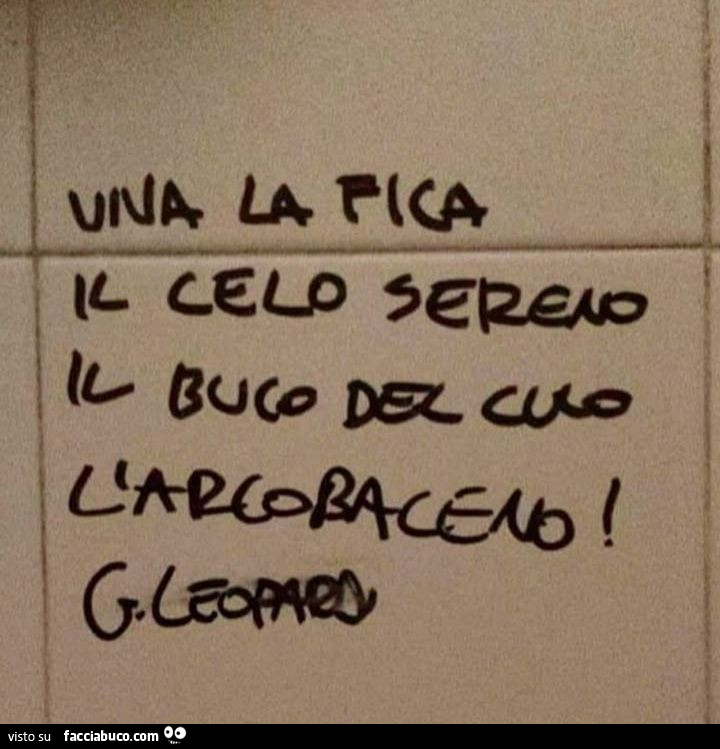 VIVA LA FICA
IL CELO SERENO
IL BUCO DEL CULO
L'ARCOBALENO!
G. LEOPARDI
visto su facciabuco.com